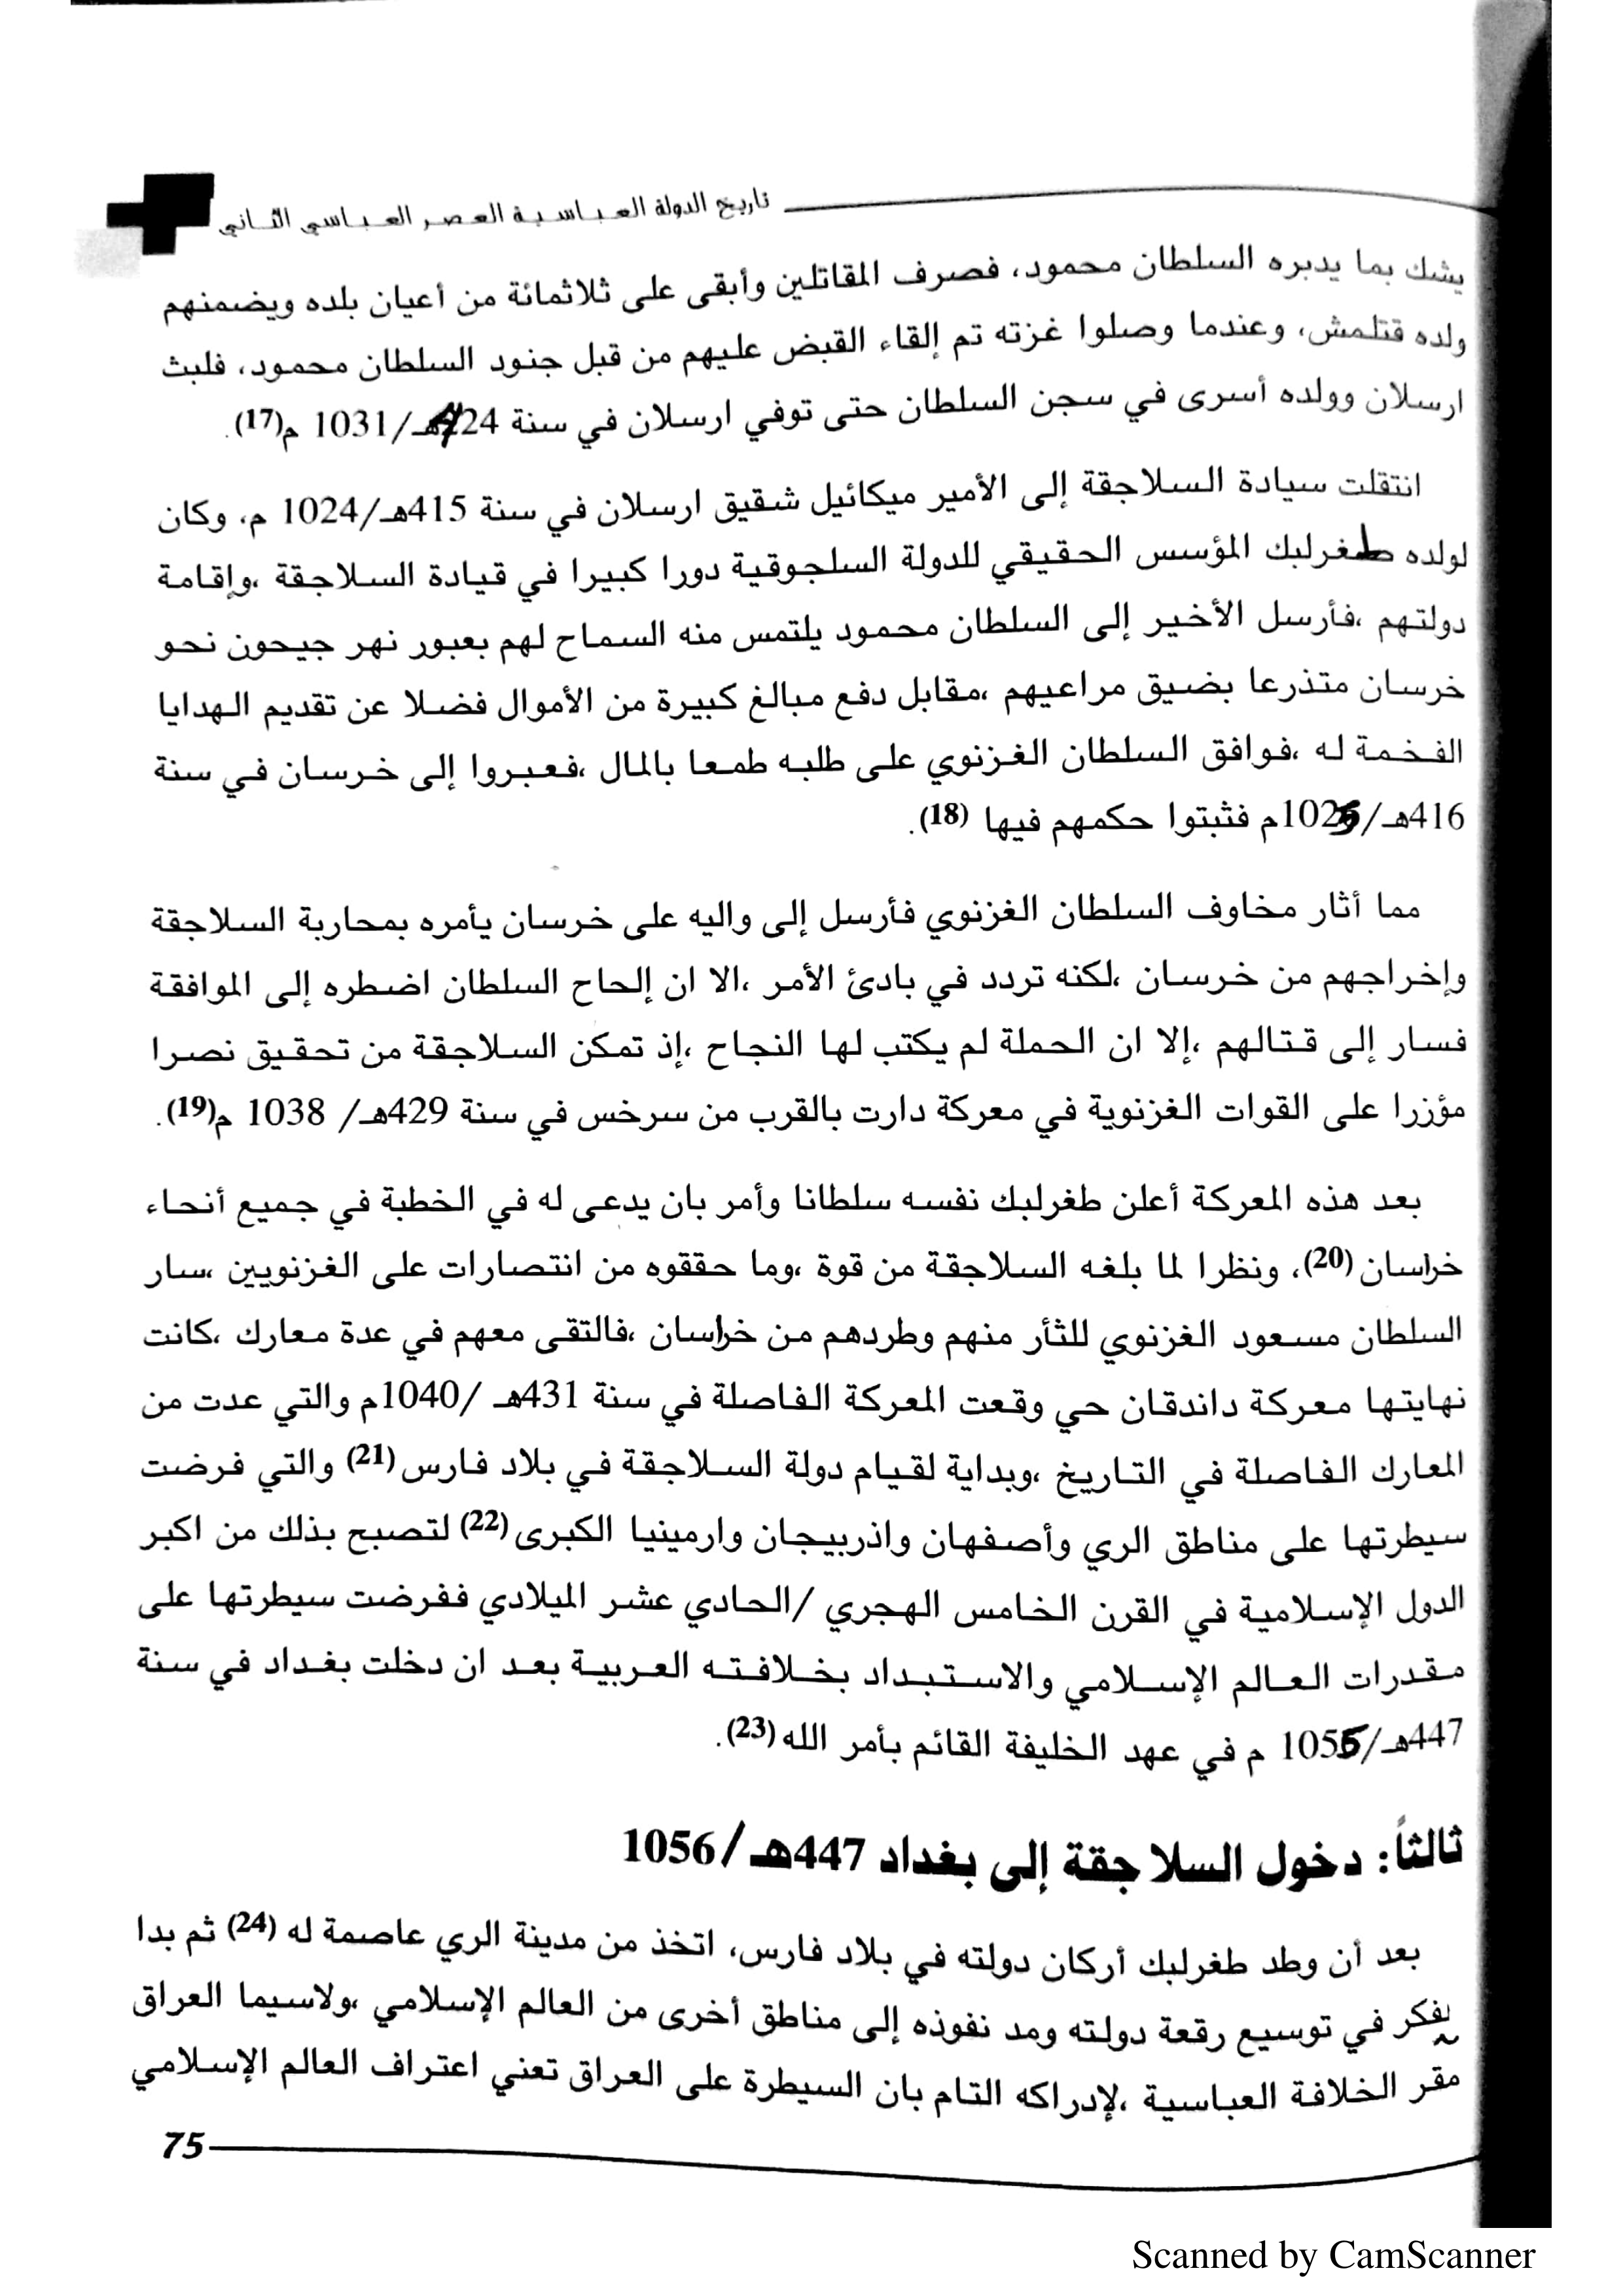 تاريخ الدولة العباسية العصر العباسي الثاني
يشك بما يدبره السلطان محمود، فصرف المقاتلين وأبقى على ثلاثمائة من أعيان بلده ويضمنهم
ولده قتلمش، وعندما وصلوا غزته تم إلقاء القبض عليهم من قبل جنود السلطان محمود، فلبث
ارسلان وولده أسرى في سجن السلطان حتى توفي ارسلان في سنة 424هـ/1031 م(17).
انتقلت سيادة السلاجقة إلى الأمير ميكائيل شقيق ارسلان في سنة 415هـ/1024 م، وكان
لولده طغرلبك المؤسس الحقيقي للدولة السلجوقية دورا كبيرا في قيادة السلاجقة ،وإقامة
دولتهم ،فأرسل الأخير إلى السلطان محمود يلتمس منه السماح لهم بعبور نهر جيحون نحو
خرسان متذرعا بضيق مراعيهم ،مقابل دفع مبالغ كبيرة من الأموال فضلا عن تقديم الهدايا
الفخمة له ،فوافق السلطان الغزنوي على طلبه طمعا بالمال ،فعبروا إلى خرسان في سنة
416هـ/1025م فثبتوا حكمهم فيها (18).
مما أثار مخاوف السلطان الغزنوي فأرسل إلى واليه على خرسان يأمره بمحاربة السلاجقة
وإخراجهم من خرسان ،لكنه تردد في بادئ الأمر ،الا ان إلحاح السلطان اضطره إلى الموافقة
فسار إلى قتالهم ،إلا ان الحملة لم يكتب لها النجاح ،إذ تمكن السلاجقة من تحقيق نصرا
مؤزرا على القوات الغزنوية في معركة دارت بالقرب من سرخس في سنة 429هـ/ 1038 م(19).
بعد هذه المعركة أعلن طغرلبك نفسه سلطانا وأمر بان يدعى له في الخطبة في جميع أنحاء
خراسان(20)، ونظرا لما بلغه السلاجقة من قوة ،وما حققوه من انتصارات على الغزنويين ،سار
السلطان مسعود الغزنوي للثأر منهم وطردهم من خراسان ،فالتقى معهم في عدة معارك ،كانت
نهايتها معركة داندقان حي وقعت المعركة الفاصلة في سنة 431هـ /1040م والتي عدت من
المعارك الفاصلة في التاريخ ،وبداية لقيام دولة السلاجقة في بلاد فارس(21) والتي فرضت
سيطرتها على مناطق الري وأصفهان واذربيجان وارمينيا الكبرى(22) لتصبح بذلك من اكبر
الدول الإسلامية في القرن الخامس الهجري /الحادي عشر الميلادي ففرضت سيطرتها على
مقدرات العالم الإسلامي والاستبداد بخلافته العربية بعد ان دخلت بغداد في سنة
447هـ/1055 م في عهد الخليفة القائم بأمر الله(23).
ثالثاً: دخول السلاجقة إلى بغداد 447هـ/1056
بعد أن وطد طغرلبك أركان دولته في بلاد فارس، اتخذ من مدينة الري عاصمة له (24) ثم بدا
يفكر في توسيع رقعة دولته ومد نفوذه إلى مناطق أخرى من العالم الإسلامي ،ولاسيما العراق
مقر الخلافة العباسية ،لإدراكه التام بان السيطرة على العراق تعني اعتراف العالم الإسلامي
75
Scanned by CamScanner